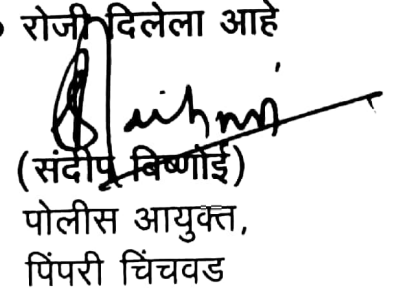 रोजी दिलेला आहे
(संदीप बिष्णोई)
पोलीस आयुक्त,
पिंपरी चिंचवड